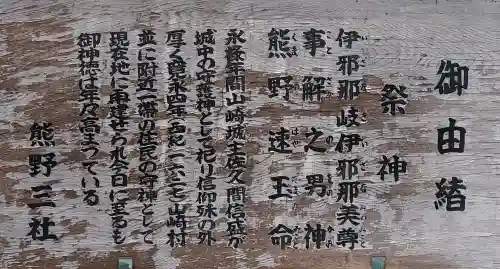 御由緒
祭神
伊邪那岐伊邪那美尊
事解之男神
熊野速玉命
永禄年間山崎城主佐久間信盛が
城中の守護神として祀り信仰殊の外
厚く寛永四年西紀(一六二七)山崎村
並に附近一帯の住民の守神として
現在地に再建せられ今日に至るも
御神徳は年々高まっている
熊野三社